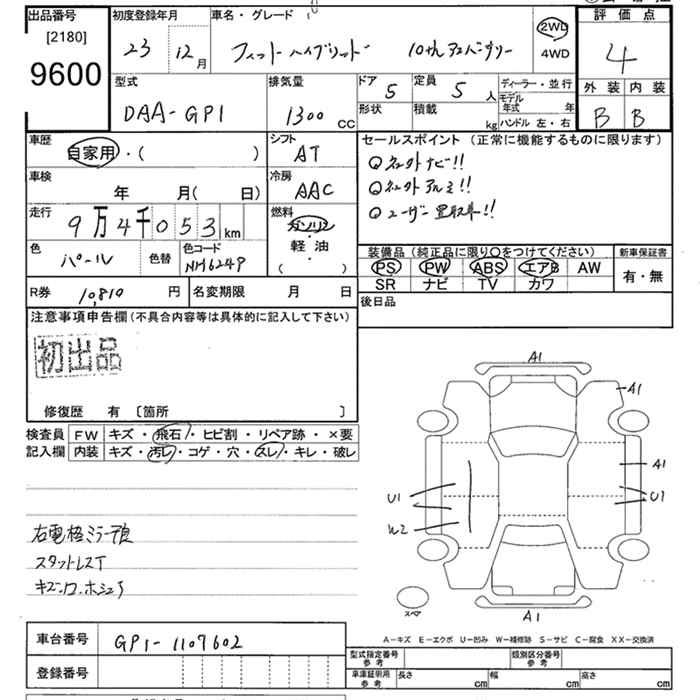 出品番号
[2180]
9600
初度登録年月
23 12月
車名・グレード
フィット ハイブリッド 10thアニバーサリー
2WD
4WD
評価点
4
外装 内装
B B
型式
DAA-GP1
排気量
1300 cc
ドア 5
定員 5 人
形状
積載 kg
ディーラー・並行
モデル年式 年
ハンドル 左・右
車歴
自家用・( )
シフト
AT
セールスポイント (正常に機能するものに限ります)
○社外ナビ!!
○社外アルミ!!
○ユーザー買取車!!
車検
年 月( 日)
冷房
AAC
走行
9万4千053km
燃料
ガソリン
・
軽油
・
( )
色
パール
色替
色コード
NH624P
装備品 (純正品に限り○をつけてください)
PS PW ABS エアB AW
SR ナビ TV カワ
新車保証書
有・無
R券 10,810円
名変期限 月 日
後日品
注意事項申告欄 (不具合内容等は具体的に記入して下さい)
初出品
修復歴 有 〔箇所 〕
検査員記入欄
FW キズ・飛石・ヒビ割・リペア跡・×要
内装 キズ・汚レ・コゲ・穴・スレ・キレ・破レ
右電格ミラー不良
スタットレスT
A1
A1
A1
U1
U1
W2
A1
スペア
A-キズ E-エクボ U-凹み W-補修跡 S-サビ C-腐食 XX-交換済
車台番号
GP1-1107602
登録番号
型式指定番号 参考
類別区分番号 参考
車庫証明用 参考
長さ cm
幅 cm
高さ cm